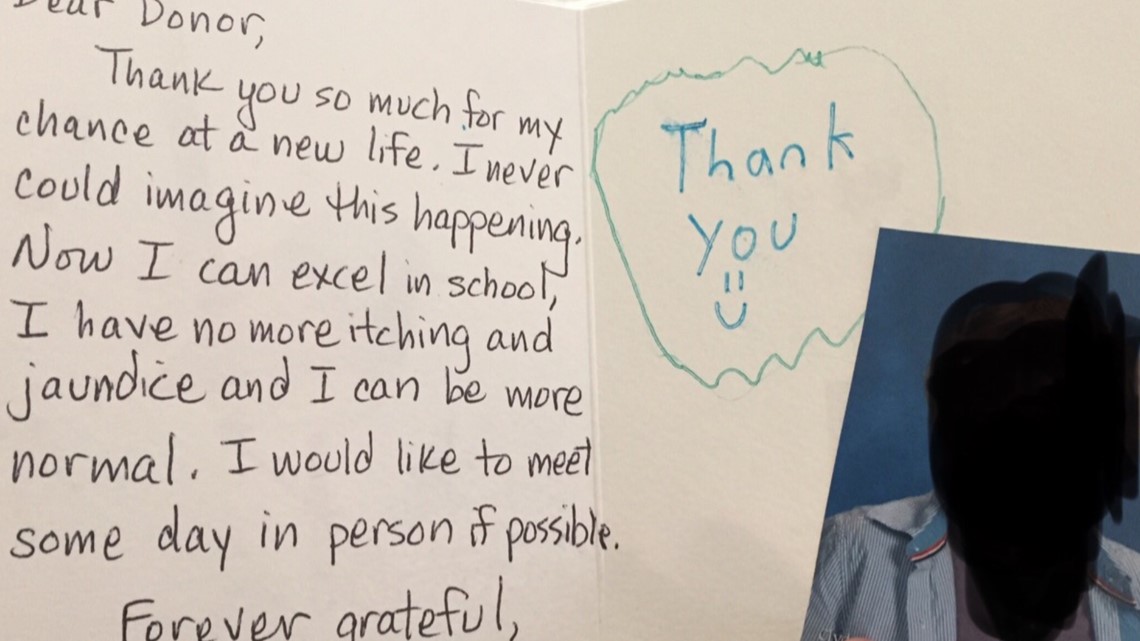 Dear Donor,
Thank you so much for my
chance at a new life. I never
could imagine this happening.
Now I can excel in school,
I have no more itching and
jaundice and I can be more
normal. I would like to meet
some day in person if possible.
Forever grateful,
Thank
you